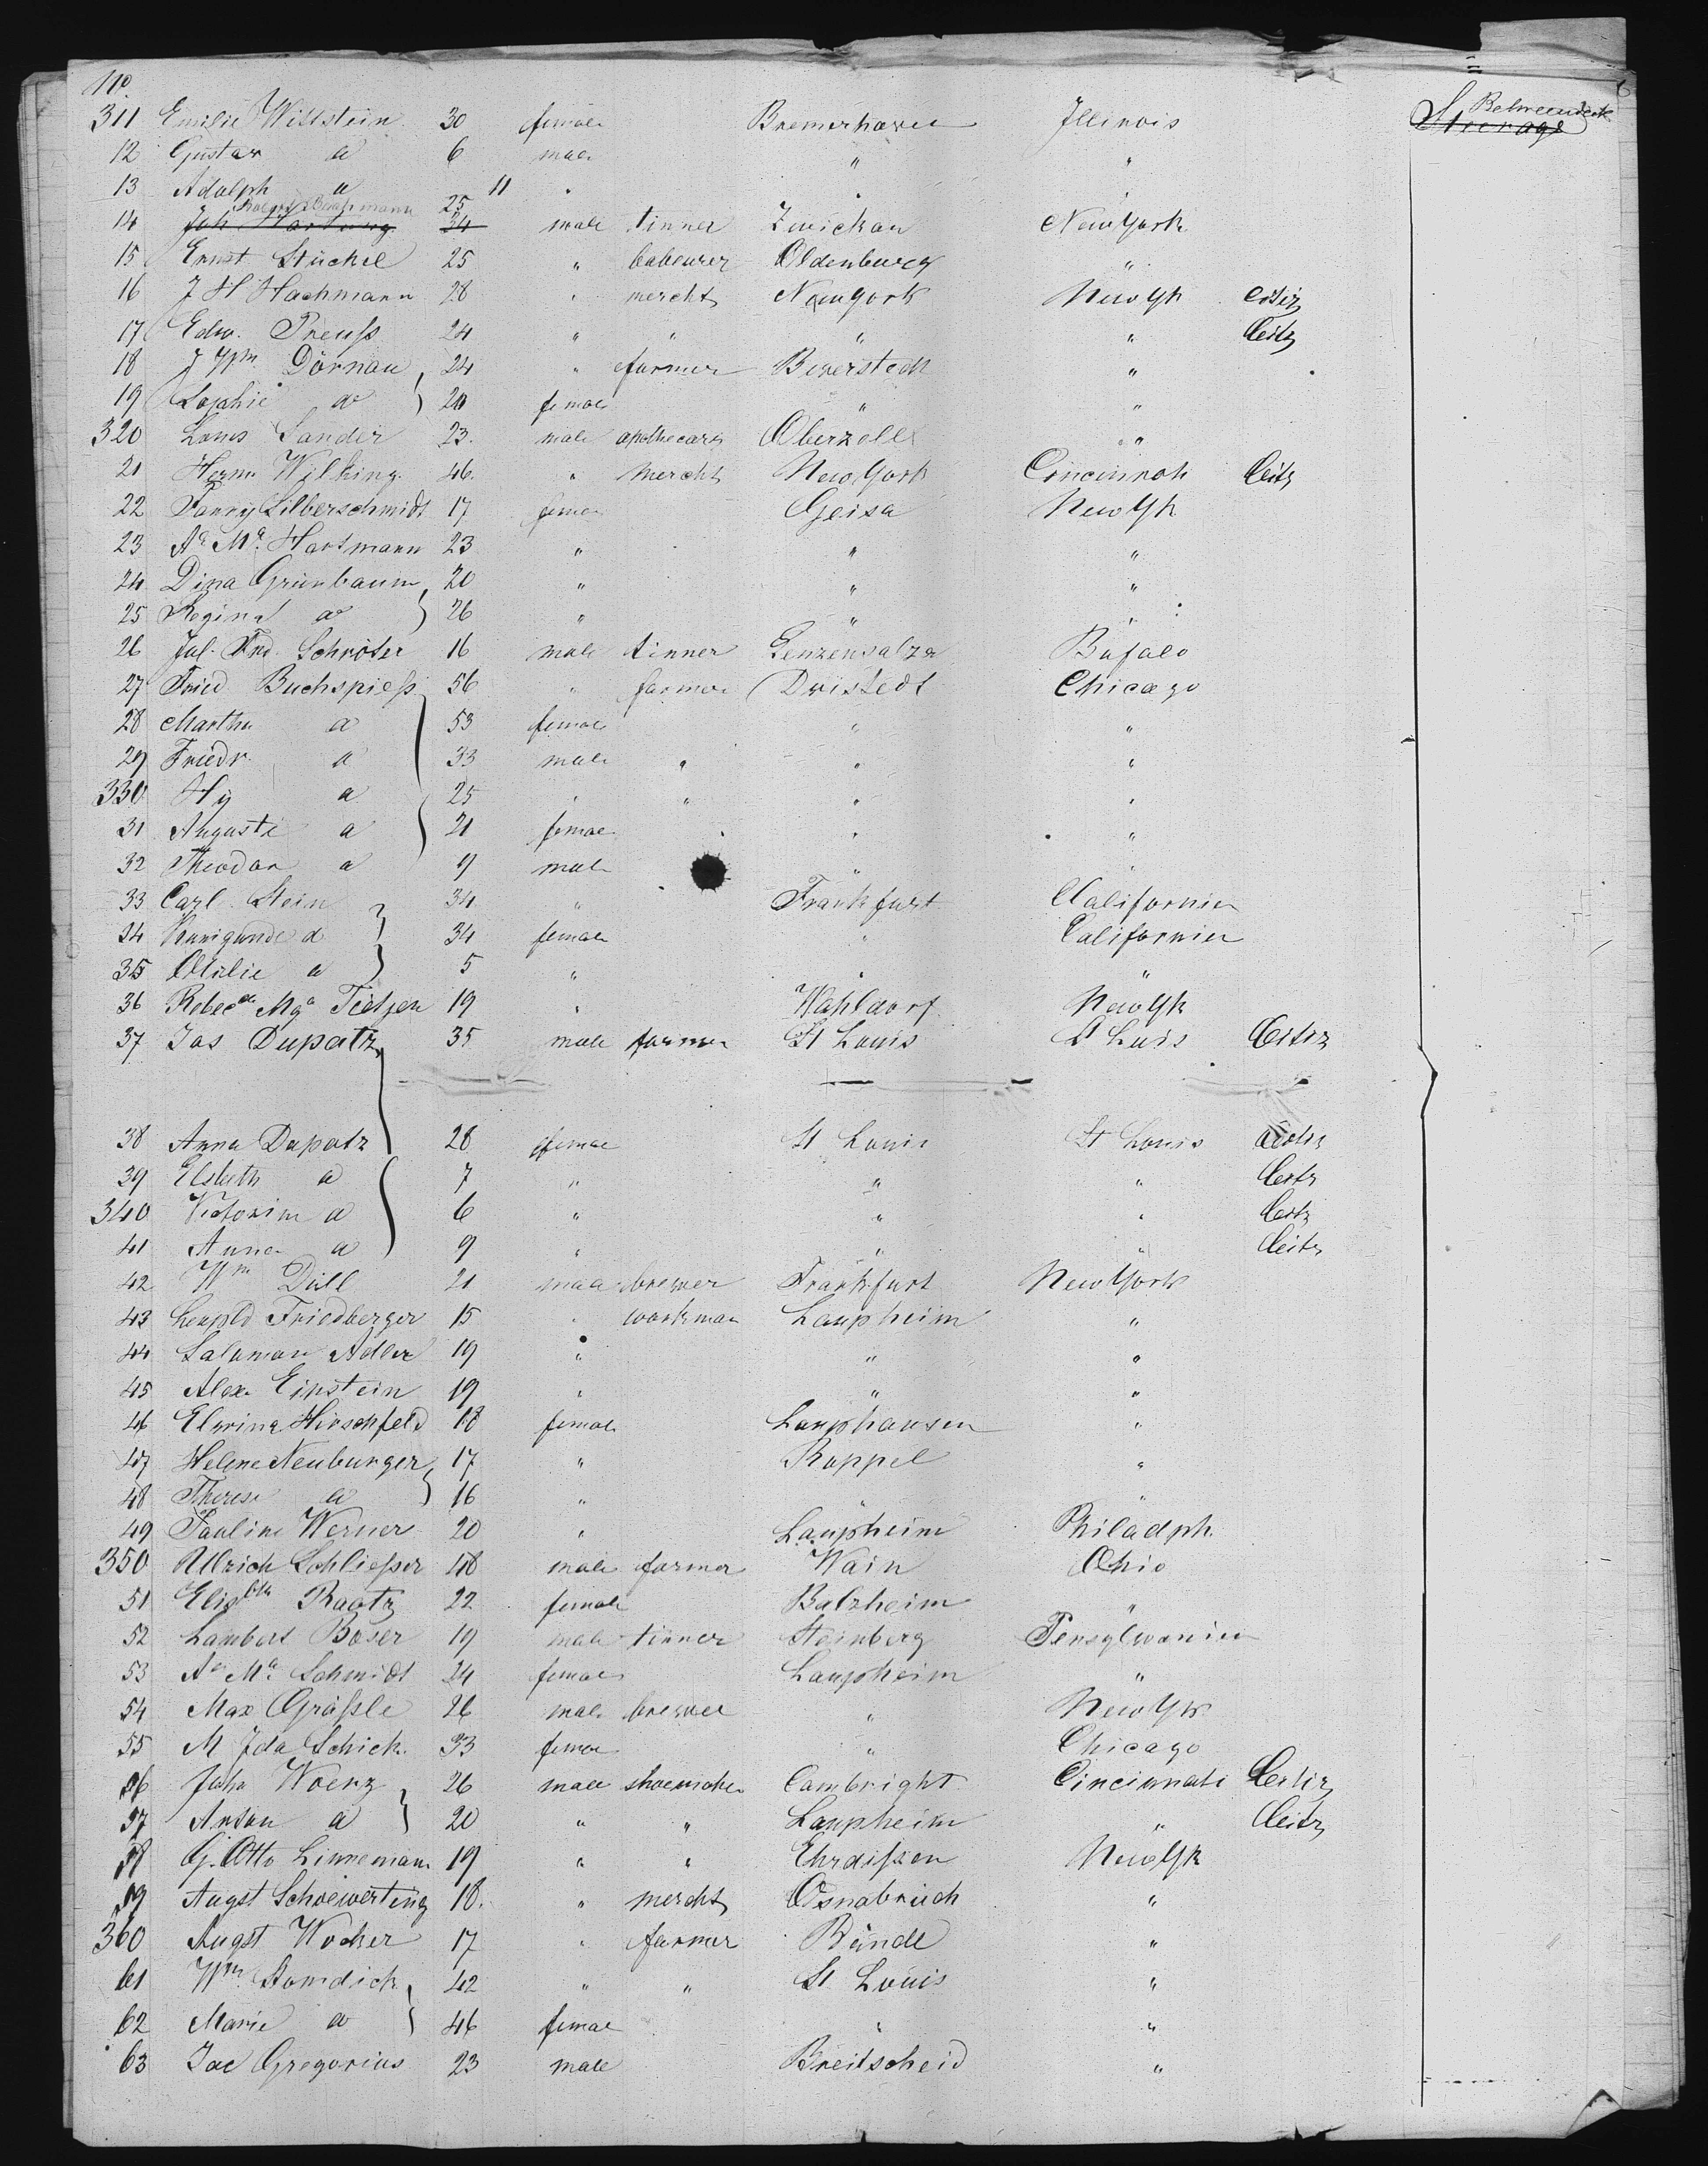 No
311 Emilie Wittstein 30 female Bremerhaven Illinois Betweendeck Steerage
12 Gustav a 6 male " "
13 Adolph a 11 " " "
Bachmann 25
14 Joh Hartung 34 male tinner Zwickau New York
15 Ernst Stückel 25 " labourer Oldenburg "
16 J H Hachmann 28 " mercht New York New Yk Citiz
17 Edw. Preuß 24 " " " " Citz
18 J Wm Dörnau 24 " farmer Bexerstedt "
19 Sophie a 20 female " "
320 Louis Sander 23. male apothecary Oberzell "
21 Herm Wilking 46. " mercht New York Cincinnati Citz
22 Fanny Silberschmidt 17 female Geisa New Yk
23 Aa Ma Hartmann 23 " " "
24 Dina Grünbaum 20 " " "
25 Regina a 26 " " "
26 Jul. Frd. Schröter 16 male tinner Lenzensalza Bufalo
27 Fried Buchspieß 56 " farmer Dristedt Chicago
28 Martha a 53 female " "
29 Friedr. a 33 male " " "
330 Hy a 25 " " " "
31 Auguste a 21 female " "
32 Theodor a 9 male " "
33 Carl Stein 34 " Frankfurt Californien
34 Kunigunde a 34 female " Californien
35 Ottilie a 5 " " "
36 Rebecca Mga Tietjen 19 " Wahldorf New Yk
37 Jos Dupatz 35 male farmer St Louis St Luis Citiz
38 Anna Dupatz 28 female St Louis St Louis Citiz
39 Elsbeth a 7 " " " Citz
340 Victorine a 6 " " " Citz
41 Anna a 9 " " " Citz
42 Wm Düll 21 male brewer Frankfurt New York
43 Leopld Friedberger 15 " workman Laupheim "
44 Salomon Adler 19 " " "
45 Alex Einstein 19 " " "
46 Elwina Hirschfeld 18 female Lauphausen "
47 Helene Neuburger 17 " Rappel "
48 Therese a 16 " " "
49 Pauline Werner 20 " Laupheim Philadph
350 Ullrich Schließer 48 male farmer Wain Ohio
51 Elisbth Raatz 22 female Balzheim "
52 Lambert Boser 19 male tinner Steinberg Pensylvanien
53 Aa Ma Schmidt 24 female Laupheim "
54 Max Gräßle 26 male brewer " New Yk
55 M Ida Schick 33 female " Chicago
56 John Woerz 26 male shoemaker Cambright Cincinnati Citiz
57 Anton a 20 " " Laupheim " Citz
58 G. Otto Linnemann 19 " " Ehrdißen New Yk
59 Augst Schoewerting 18. " mercht Osnabrück "
360 Augst Wocker 17 " farmer Bünde "
61 Wm Samdick 42 " " St Louis "
62 Marie a 46 female " "
63 Jac Gregorius 23 male Breitscheid "